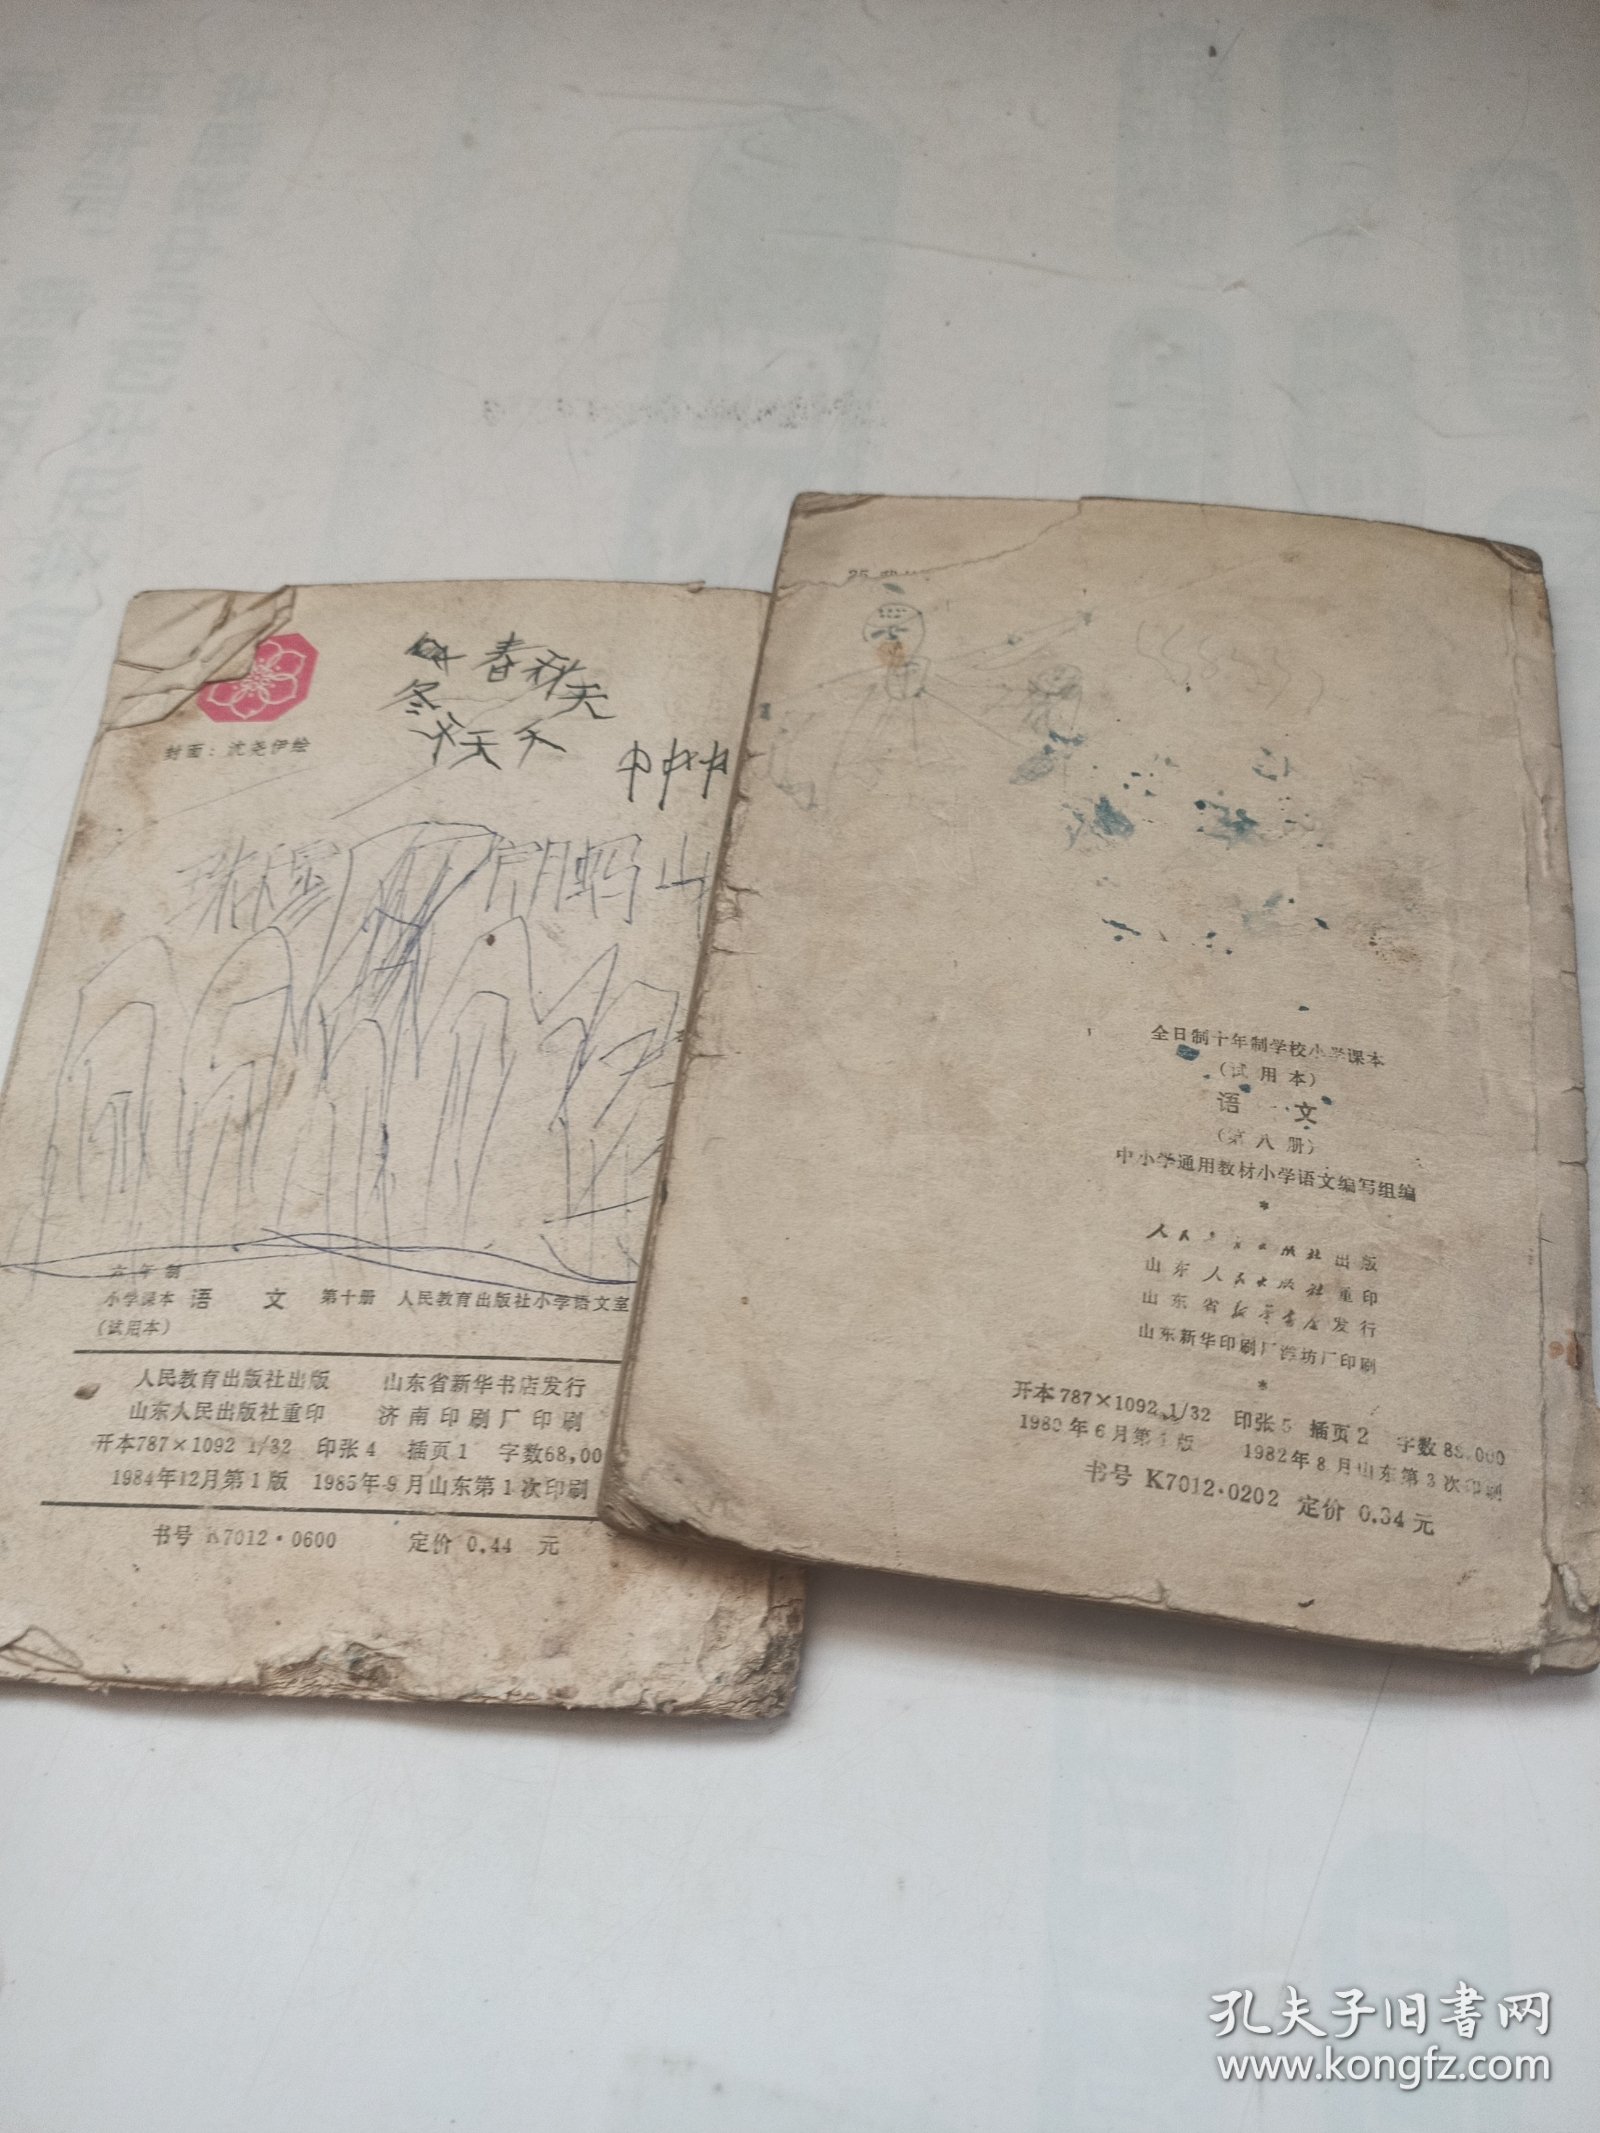 封面：沈尧伊绘
春秋天
冬
天天
中中中
山
六年制
小学课本 语 文 第十册 人民教育出版社小学语文室
（试用本）
人民教育出版社出版 山东省新华书店发行
山东人民出版社重印 济南印刷厂印刷
开本787×1092 1/32 印张4 插页1 字数68,00
1984年12月第1版 1985年9月山东第1次印刷
书号 K7012·0600 定价 0.44 元
全日制十年制学校小学课本
（试用本）
语 文
（第八册）
中小学通用教材小学语文编写组编
*
人民教育出版社出版
山东人民出版社重印
山东省新华书店发行
山东新华印刷厂潍坊厂印刷
*
开本787×1092 1/32 印张5 插页2 字数88,000
1980年6月第1版 1982年8月山东第3次印刷
书号 K7012·0202 定价 0.34元
孔夫子旧书网
www.kongfz.com